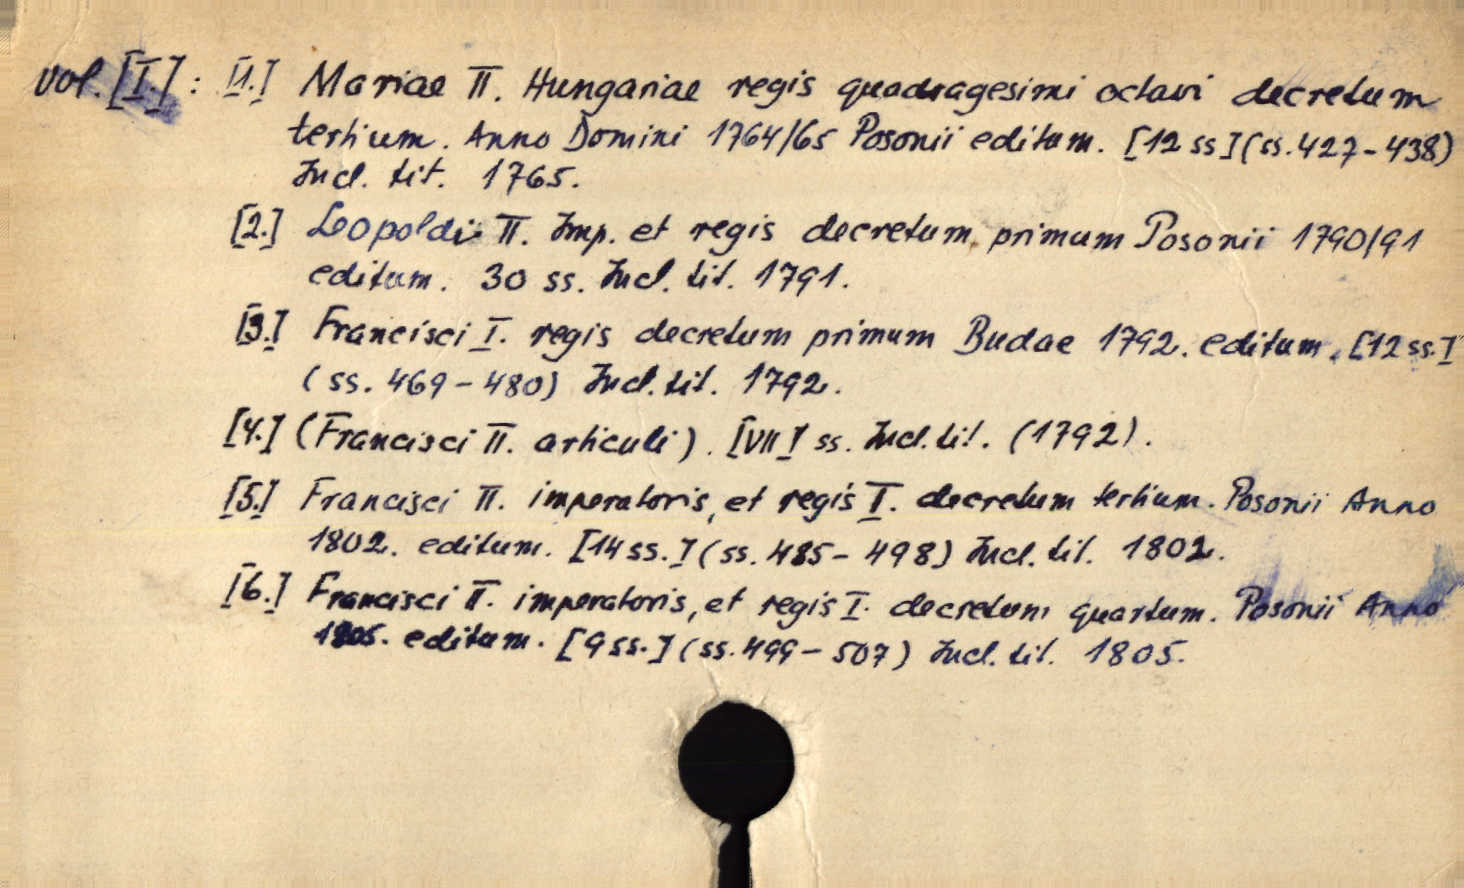 vol. [I.] : [1.] Mariae II. Hungariae regis quadragesimi octavi decretum
tertium. Anno Domini 1764/65 Posonii editum. [12 ss] (ss. 427-438)
Incl. tit. 1765.
[2.] Leopoldi II. Imp. et regis decretum primum Posonii 1790/91
editum. 30 ss. Incl. tit. 1791.
[3.] Francisci I. regis decretum primum Budae 1792. editum. [12 ss.]
(ss. 469-480) Incl. tit. 1792.
[4.] (Francisci II. articuli). [VII] ss. Incl. tit. (1792).
[5.] Francisci II. imperatoris, et regis I. decretum tertium. Posonii Anno
1802. editum. [14 ss.] (ss. 485-498) Incl. tit. 1802.
[6.] Francisci II. imperatoris, et regis I. decretum quartum. Posonii Anno
1805. editum. [9 ss.] (ss. 499-507) Incl. tit. 1805.